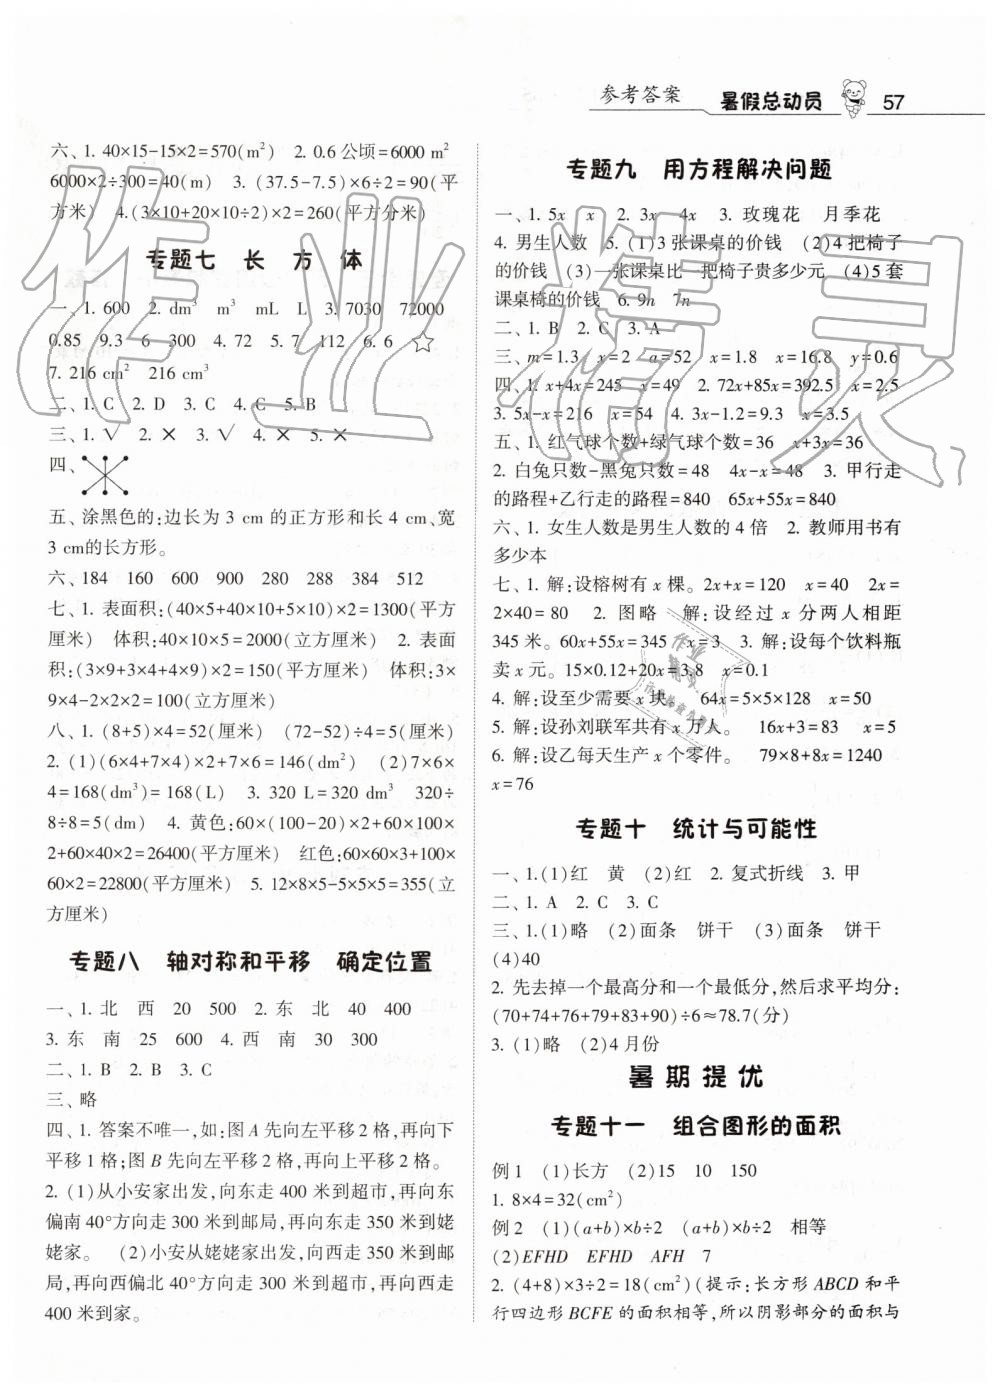 参考答案 暑假总动员 57
六、1. 40×15-15×2=570(m²) 2. 0.6公顷=6000 m²
6000×2÷300=40(m) 3. (37.5-7.5)×6÷2=90(平
方米) 4.(3×10+20×10÷2)×2=260(平方分米)
专题七 长 方 体
一、1. 600 2. dm³ m³ mL L 3. 7030 72000
0.85 9.3 6 300 4. 72 5. 7 112 6. 6 ☆
7. 216 cm² 216 cm³
二、1. C 2. D 3. C 4. C 5. B
三、1. √ 2. × 3. √ 4. × 5. ×
四、
五、涂黑色的:边长为3 cm的正方形和长4 cm、宽
3 cm的长方形。
六、184 160 600 900 280 288 384 512
七、1. 表面积:(40×5+40×10+5×10)×2=1300(平方
厘米) 体积:40×10×5=2000(立方厘米) 2. 表面
积:(3×9+3×4+4×9)×2=150(平方厘米) 体积:3×
9×4-2×2×2=100(立方厘米)
八、1. (8+5)×4=52(厘米) (72-52)÷4=5(厘米)
2. (1)(6×4+7×4)×2+7×6=146(dm²) (2)7×6×
4=168(dm³)=168(L) 3. 320 L=320 dm³ 320÷
8÷8=5(dm) 4. 黄色:60×(100-20)×2+60×100×
2+60×40×2=26400(平方厘米) 红色:60×60×3+100×
60×2=22800(平方厘米) 5. 12×8×5-5×5×5=355(立
方厘米)
专题八 轴对称和平移 确定位置
一、1. 北 西 20 500 2. 东 北 40 400
3. 东 南 25 600 4. 西 南 30 300
二、1. B 2. B 3. C
三、略
四、1. 答案不唯一,如:图A先向左平移2格,再向下
平移1格;图B先向左平移2格,再向上平移2格。
2. (1)从小安家出发,向东走400米到超市,再向东
偏南40°方向走300米到邮局,再向东走350米到姥
姥家。 (2)小安从姥姥家出发,向西走350米到邮
局,再向西偏北40°方向走300米到超市,再向西走
400米到家。
专题九 用方程解决问题
一、1. 5x x 2. 3x 4x 3. 玫瑰花 月季花
4. 男生人数 5. (1)3张课桌的价钱 (2)4把椅子
的价钱 (3)一张课桌比一把椅子贵多少元 (4)5套
课桌椅的价钱 6. 9n 7n
二、1. B 2. C 3. A
三、m=1.3 x=2 a=52 x=1.8 x=16.8 y=0.6
四、1. x+4x=245 x=49 2. 72x+85x=392.5 x=2.5
3. 5x-x=216 x=54 4. 3x-1.2=9.3 x=3.5
五、1. 红气球个数+绿气球个数=36 x+3x=36
2. 白兔只数-黑兔只数=48 4x-x=48 3. 甲行走
的路程+乙行走的路程=840 65x+55x=840
六、1. 女生人数是男生人数的4倍 2. 教师用书有
多少本
七、1. 解:设榕树有x棵。2x+x=120 x=40 2x=
2×40=80 2. 图略 解:设经过x分两人相距
345米。60x+55x=345 x=3 3. 解:设每个饮料瓶
卖x元。15×0.12+20x=3.8 x=0.1
4. 解:设至少需要x块。 64x=5×5×128 x=50
5. 解:设孙刘联军共有x万人。 16x+3=83 x=5
6. 解:设乙每天生产x个零件。 79×8+8x=1240
x=76
专题十 统计与可能性
一、1.(1)红 黄 (2)红 2. 复式折线 3. 甲
二、1. A 2. C 3. C
三、1.(1)略 (2)面条 饼干 (3)面条 饼干
(4)40
2. 先去掉一个最高分和一个最低分,然后求平均分:
(70+74+76+79+83+90)÷6≈78.7(分)
3. (1)略 (2)4月份
暑期提优
专题十一 组合图形的面积
例1 (1)长方 (2)15 10 150
1. 8×4=32(cm²)
例2 (1)(a+b)×b÷2 (a+b)×b÷2 相等
(2)EFHD EFHD AFH 7
2. (4+8)×3÷2=18(cm²)(提示:长方形ABCD和平
行四边形BCFE的面积相等,所以阴影部分的面积与
作业精灵